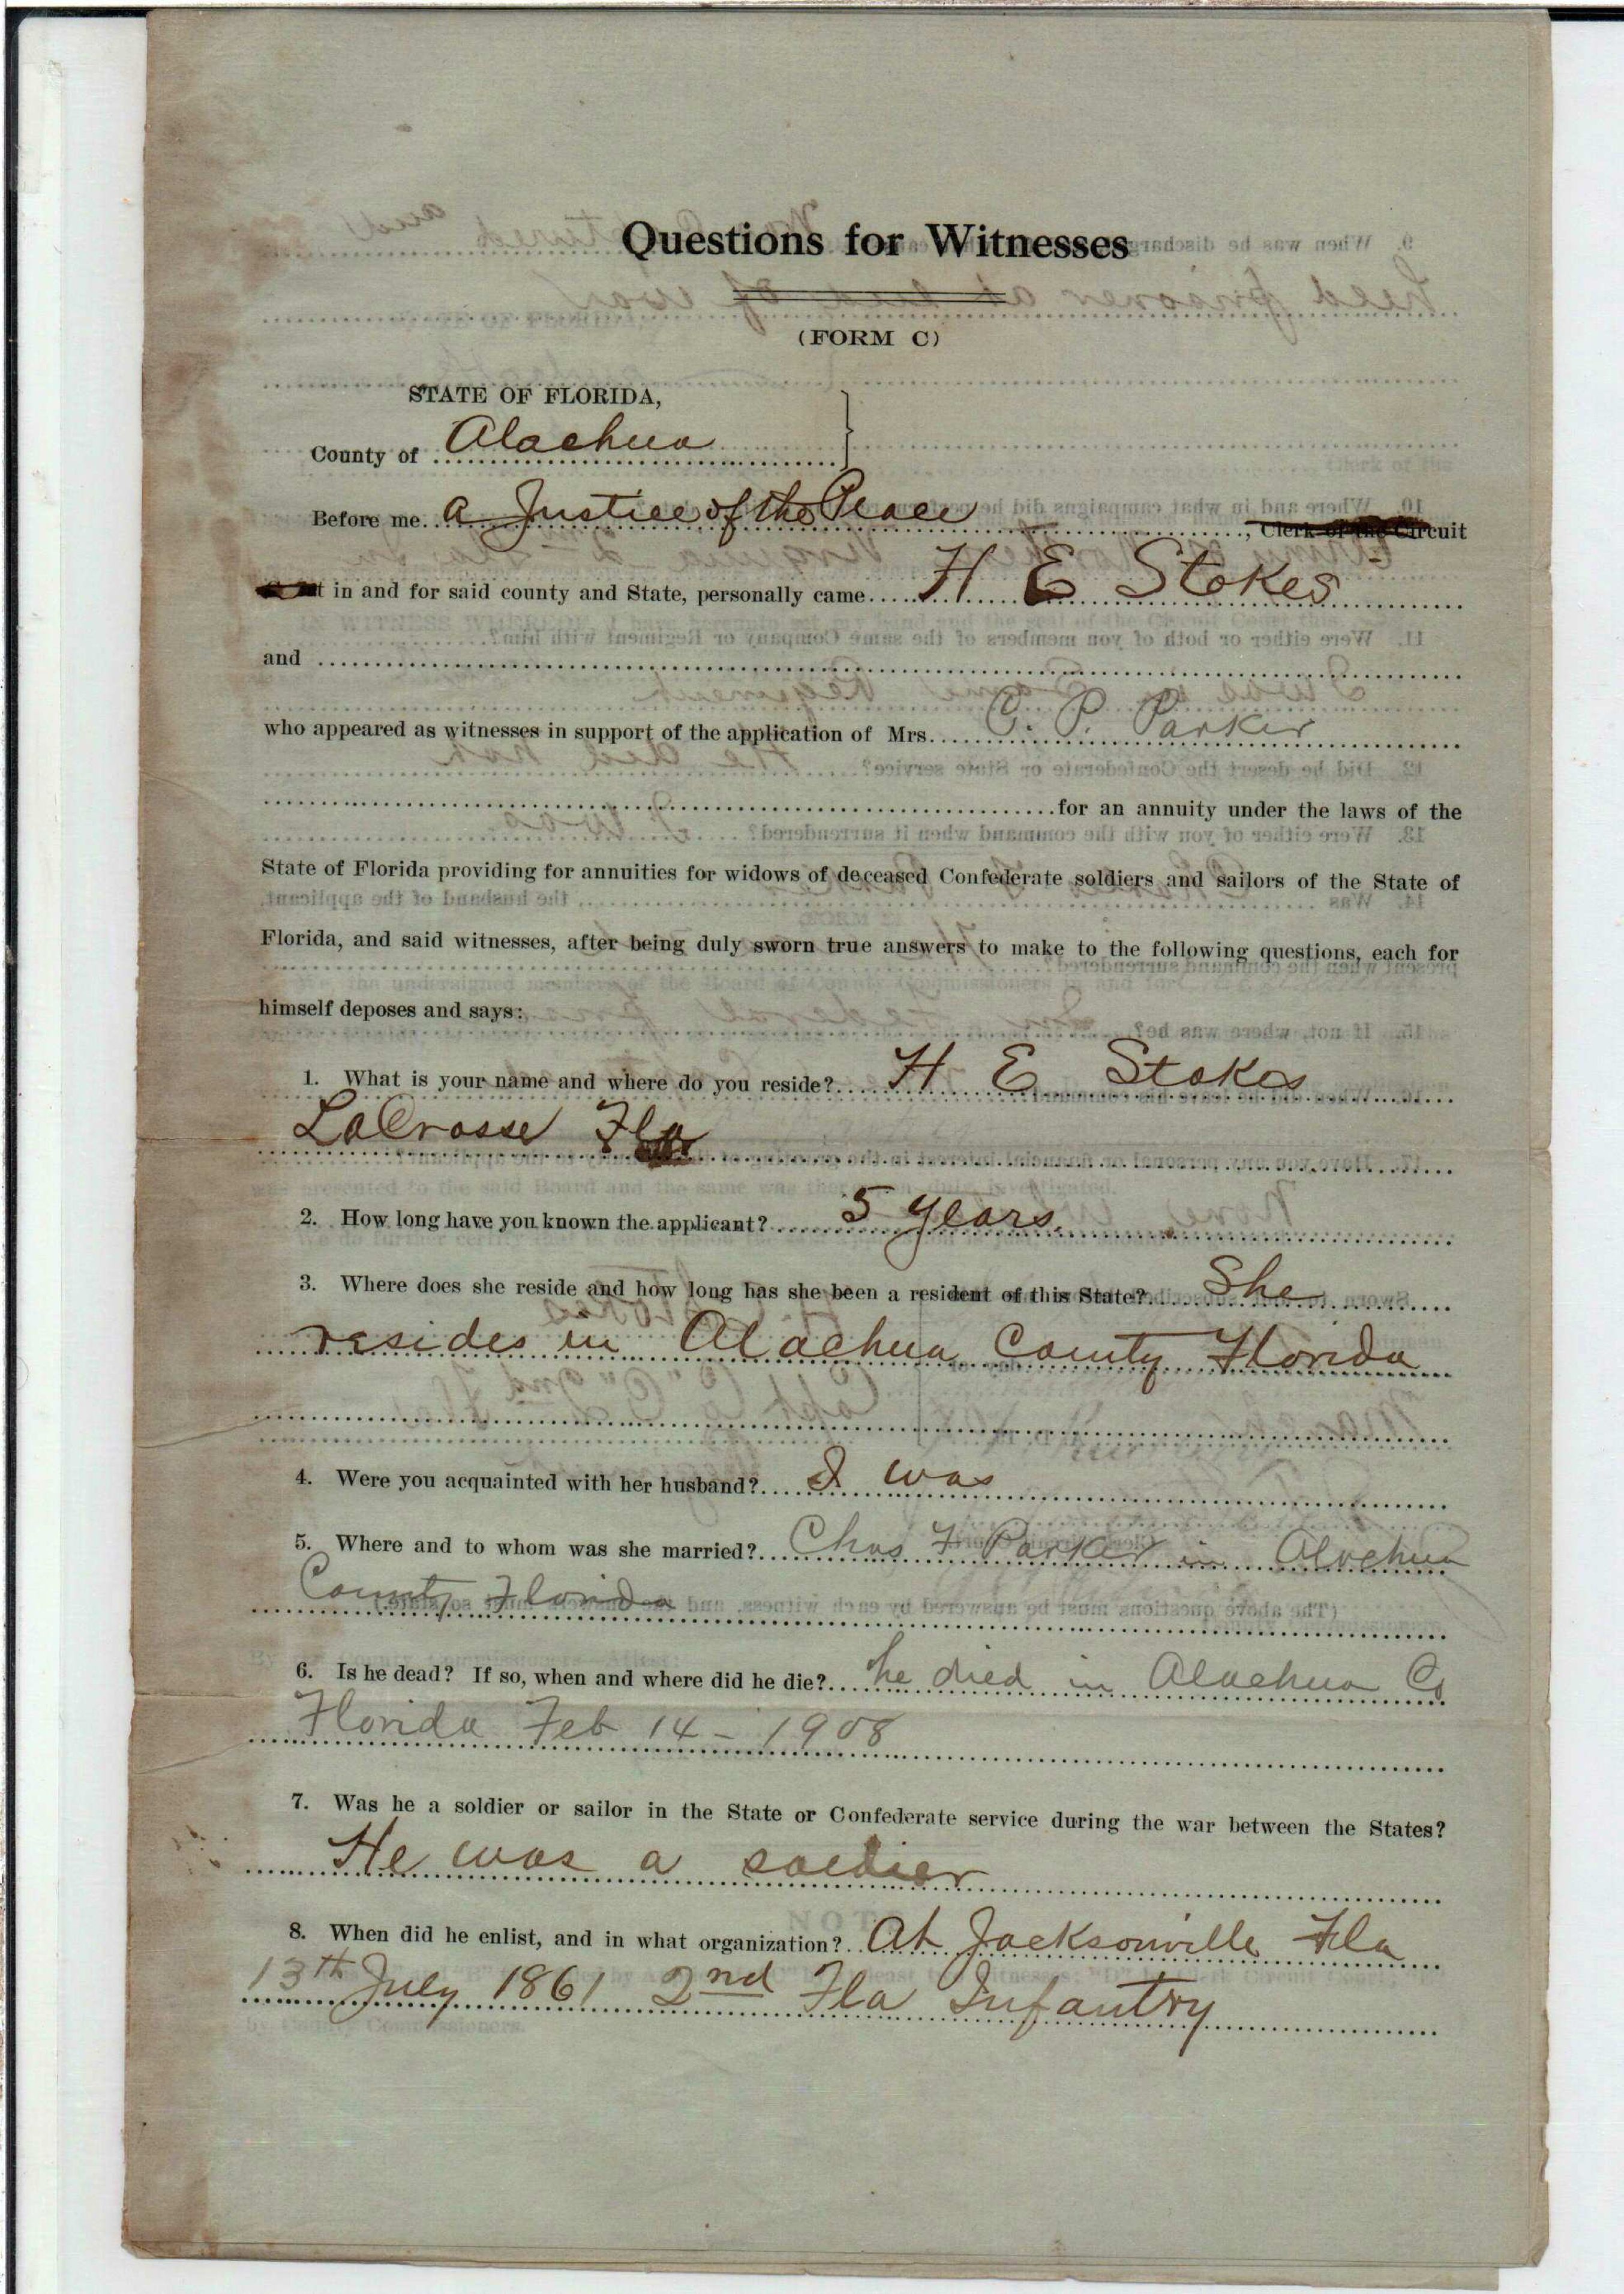 Questions for Witnesses
(FORM C)
STATE OF FLORIDA,
County of Alachua
Before me a Justice of the Peace, Clerk of the Circuit
in and for said county and State, personally came H E Stokes
and
who appeared as witnesses in support of the application of Mrs. C. P. Parker
for an annuity under the laws of the
State of Florida providing for annuities for widows of deceased Confederate soldiers and sailors of the State of
Florida, and said witnesses, after being duly sworn true answers to make to the following questions, each for
himself deposes and says:
1. What is your name and where do you reside? H E Stokes
LaCrosse Fla
2. How long have you known the applicant? 5 years.
3. Where does she reside and how long has she been a resident of this State? She
resides in Alachua County Florida
4. Were you acquainted with her husband? I was
5. Where and to whom was she married? Chas F Parker in Alachua
County Florida
6. Is he dead? If so, when and where did he die? he died in Alachua Co
Florida Feb 14 - 1908
7. Was he a soldier or sailor in the State or Confederate service during the war between the States?
He was a soldier
8. When did he enlist, and in what organization? At Jacksonville Fla
13th July 1861 2nd Fla Infantry